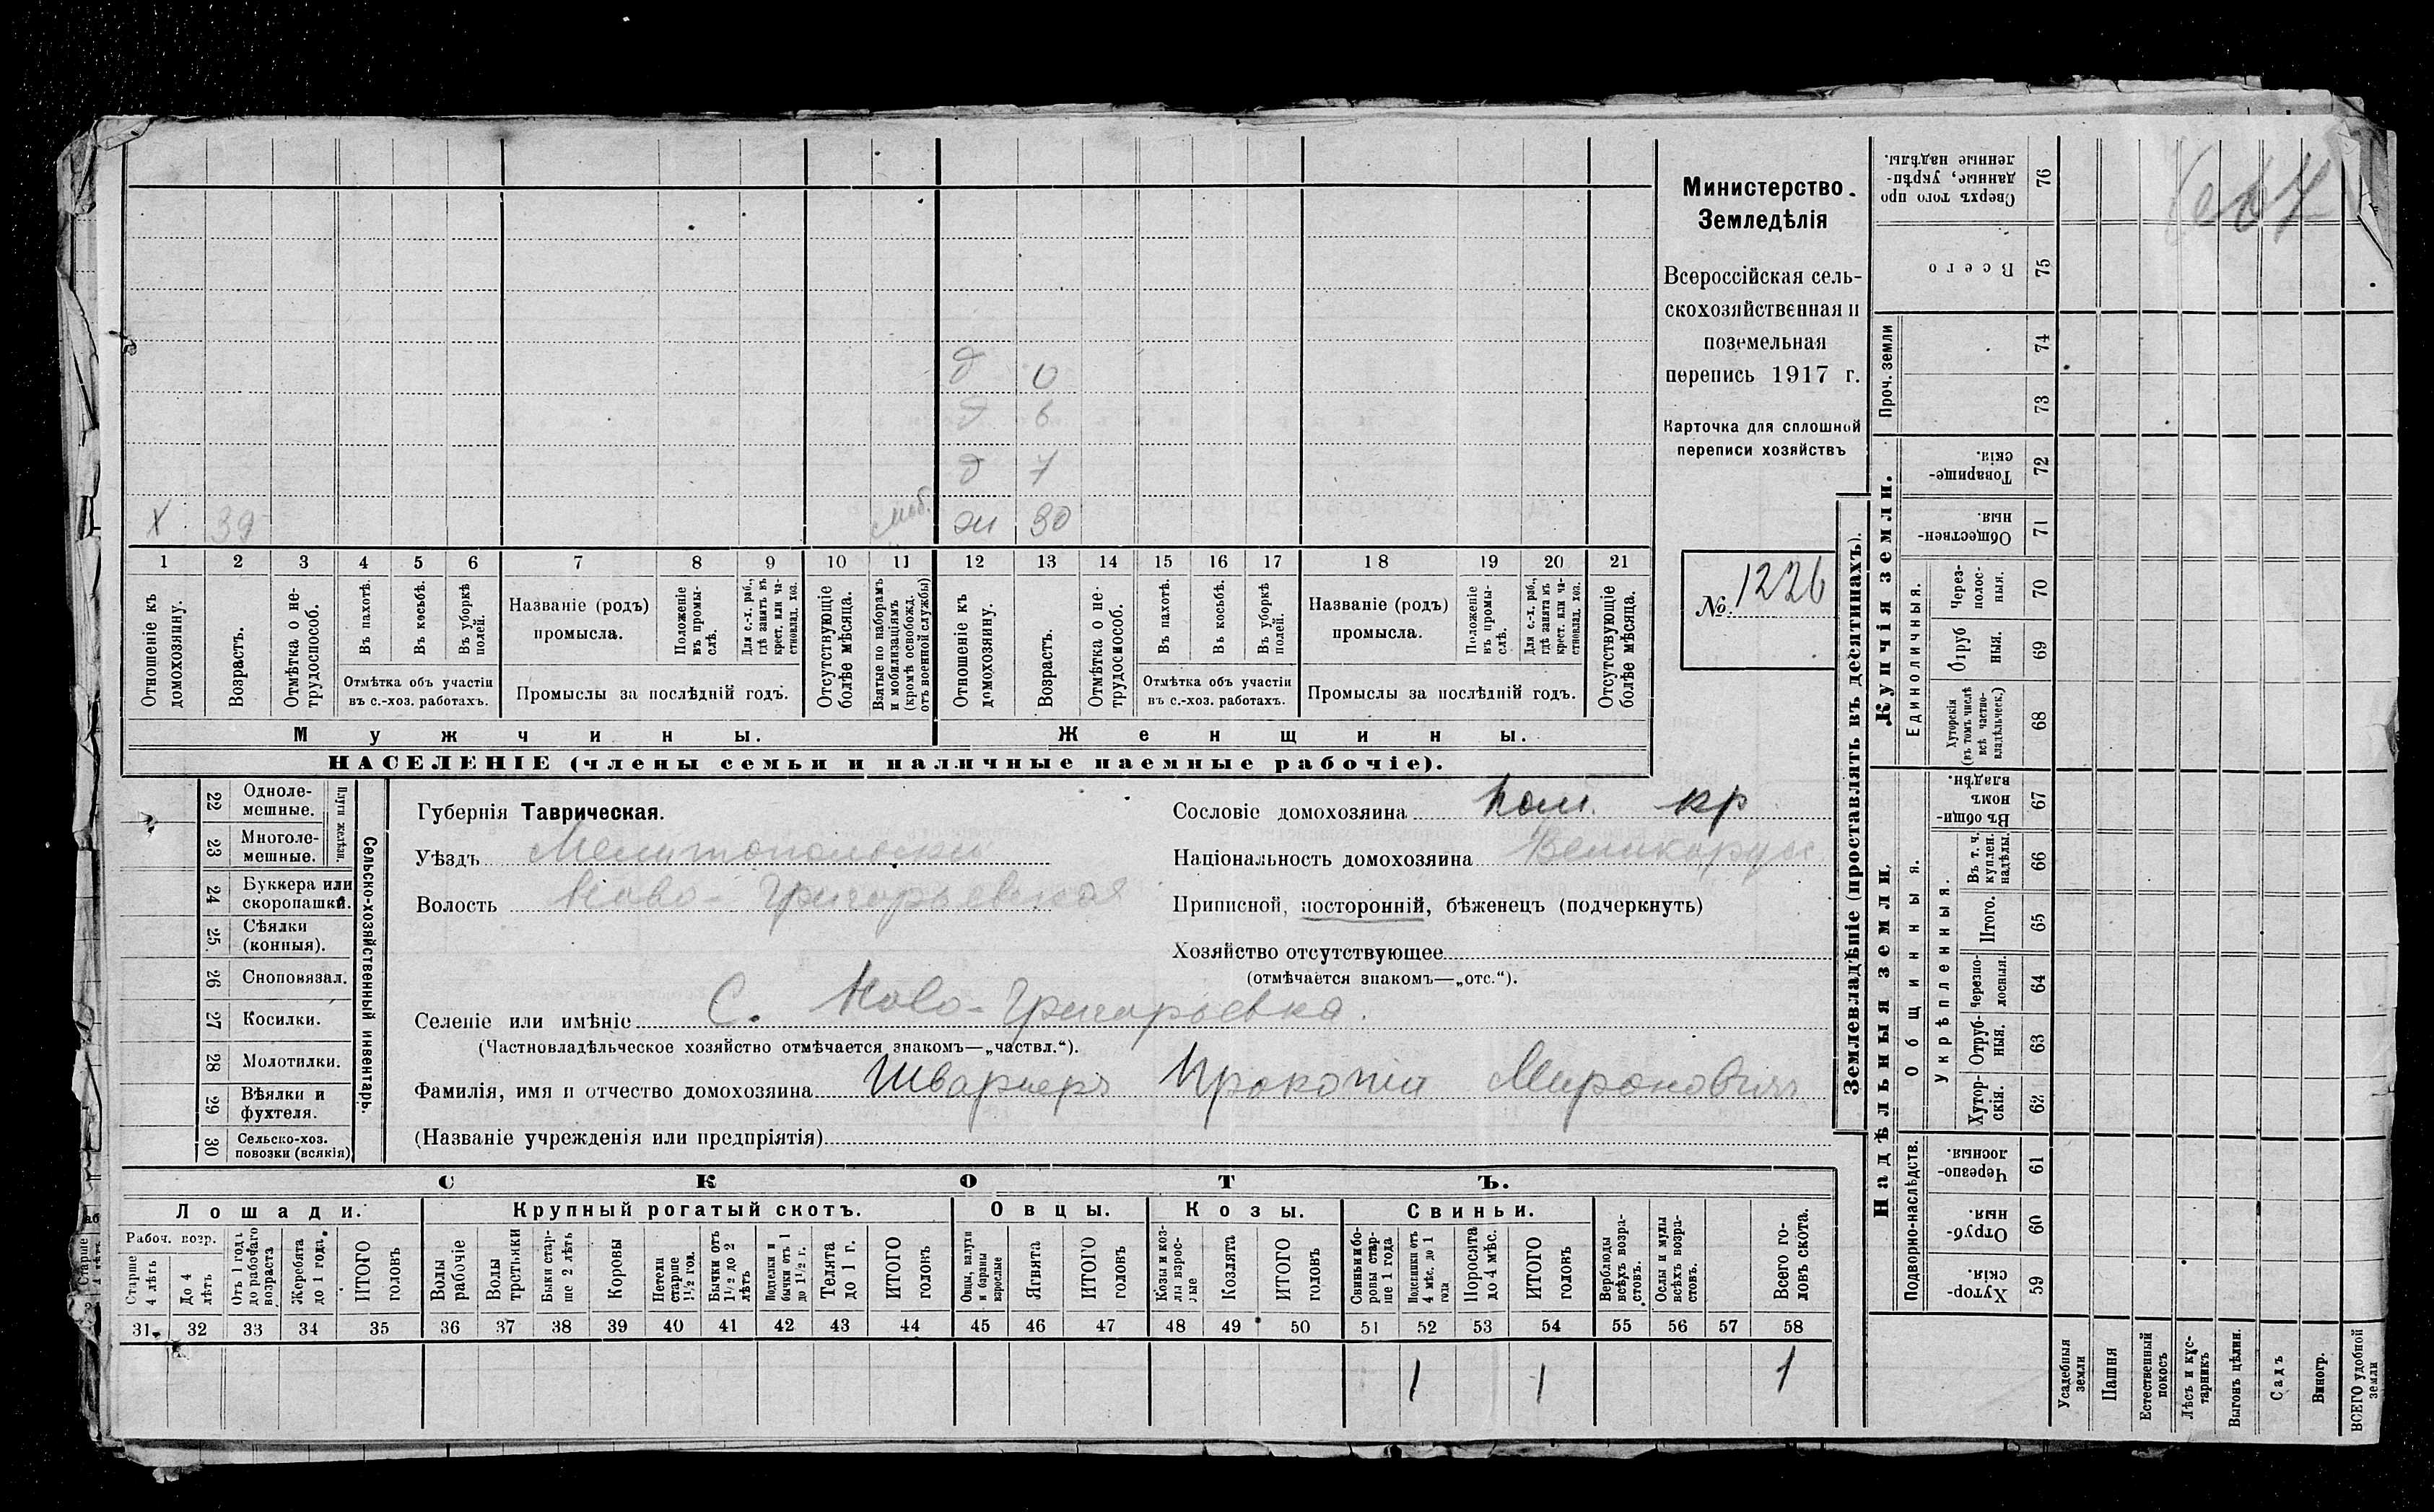 Министерство
Земледѣлія
Всероссійская сель-
скохозяйственная и
поземельная
перепись 1917 г.
Карточка для сплошной
переписи хозяйствъ
№ 1226
д 0
д 6
д 7
Х 39 моб. ж 30
1 2 3 4 5 6 7 8 9 10 11 12 13 14 15 16 17 18 19 20 21
Отношеніе къ домохозяину.
Возрастъ.
Отмѣтка о не-
трудоспособ.
Въ пахотѣ.
Въ косьбѣ.
Въ уборкѣ полей.
Отмѣтка объ участіи
въ с.-хоз. работахъ.
Названіе (родъ)
промысла.
Положеніе въ промы-
слѣ.
Для с.-х. раб.,
гдѣ занятъ въ
крест. или ча-
стновлад. хоз.
Промыслы за послѣдній годъ.
Отсутствующіе
болѣе мѣсяца.
Взятые по наборамъ
и мобилизаціямъ
(кромѣ освобожд.
отъ военной службы)
Отношеніе къ
домохозяину.
Возрастъ.
Отмѣтка о не-
трудосмособ.
Въ пахотѣ.
Въ косьбѣ.
Въ уборкѣ
полей.
Отмѣтка объ участіи
въ с.-хоз. работахъ.
Названіе (родъ)
промысла.
Положеніе
въ промы-
слѣ.
Для с.-х. раб.,
гдѣ занятъ въ
крест. или ча-
стновлад. хоз.
Промыслы за послѣдній годъ.
Отсутствующіе
болѣе мѣсяца.
Мужчины.
Женщины.
НАСЕЛЕНІЕ (члены семьи и наличные наемные рабочіе).
Сельско-хозяйственный инвентарь.
Плуги желѣзн.
22 Одноле-
мешные.
23 Многоле-
мешные.
24 Буккера или
скоропашки.
25. Сѣялки
(конныя).
26 Сноповязал.
27 Косилки.
28 Молотилки.
29 Вѣялки и
фухтеля.
30 Сельско-хоз.
повозки (всякія)
Губернія Таврическая.
Уѣздъ Мелитопольскій
Волость Ново-Григорьевская
Сословіе домохозяина кр
Національность домохозяина Великорус
Приписной, посторонній, бѣженецъ (подчеркнуть)
Хозяйство отсутствующее
(отмѣчается знакомъ—„отс.“).
Селеніе или имѣніе С. Ново-Григорьевка.
(Частновладѣльческое хозяйство отмѣчается знакомъ—„частвл.“).
Фамилія, имя и отчество домохозяина Прокопій Мироновичъ
(Названіе учрежденія или предпріятія)
СКОТЪ.
Лошади.
Крупный рогатый скотъ.
Овцы.
Козы.
Свиньи.
Рабоч. возр.
Старше
4 лѣтъ
До 4
лѣтъ
Отъ 1 года
до рабочаго
возраста
Жеребята
до 1 года.
ИТОГО
головъ
Волы
рабочіе
Волы
третьяки
Быки стар-
ше 2 лѣтъ
Коровы
Нетели
старше
1½ год.
Бычки отъ
1½ до 2
лѣтъ
Подтелки и
бычки отъ 1
до 1½ г.
Телята
до 1 г.
ИТОГО
головъ
Овцы, валухи
и бараны
взрослые
Ягнята
ИТОГО
головъ
Козы и коз-
лы взрос-
лые
Козлята
ИТОГО
головъ
Свиньи и бо-
ровы стар-
ше 1 года
Подсвинки отъ
4 мѣс. до 1
года
Поросята
до 4 мѣс.
ИТОГО
головъ
Верблюды
всѣхъ возра-
стовъ.
Ослы и мулы
всѣхъ возра-
стовъ.
Всего го-
ловъ скота.
31 32 33 34 35 36 37 38 39 40 41 42 43 44 45 46 47 48 49 50 51 52 53 54 55 56 57 58
1 1 1
Землевладѣніе (проставлять въ десятинахъ).
Купчія земли.
Проч. земли
Сверхъ того про
данные, укрѣп-
ленные надѣлы.
76
Всего
75
74
73
Товарище-
скія.
72
Обществен-
ныя.
71
Единоличныя.
Через-
полос-
ныя.
70
Отруб
ныя.
69
Хуторскія
(въ томъ числѣ
всѣ частно-
владѣльческ.)
68
Надѣльныя земли.
Общинныя.
Въ общи-
номъ
владѣн.
67
Укрѣпленныя.
Въ т. ч.
куплен.
надѣлы.
66
Итого.
65
Черезпо-
лосныя.
64
Отруб-
ныя.
63
Хутор-
скія.
62
Подворно-наслѣдств.
Черезпо-
лосныя.
61
Отруб-
ныя.
60
Хутор-
скія.
59
Усадебныя
земли
Пашня
Естественный
покосъ
Лѣсъ и кус-
тарникъ
Выгонъ цѣлин.
Садъ
Виногр.
ВСЕГО удобной
земли